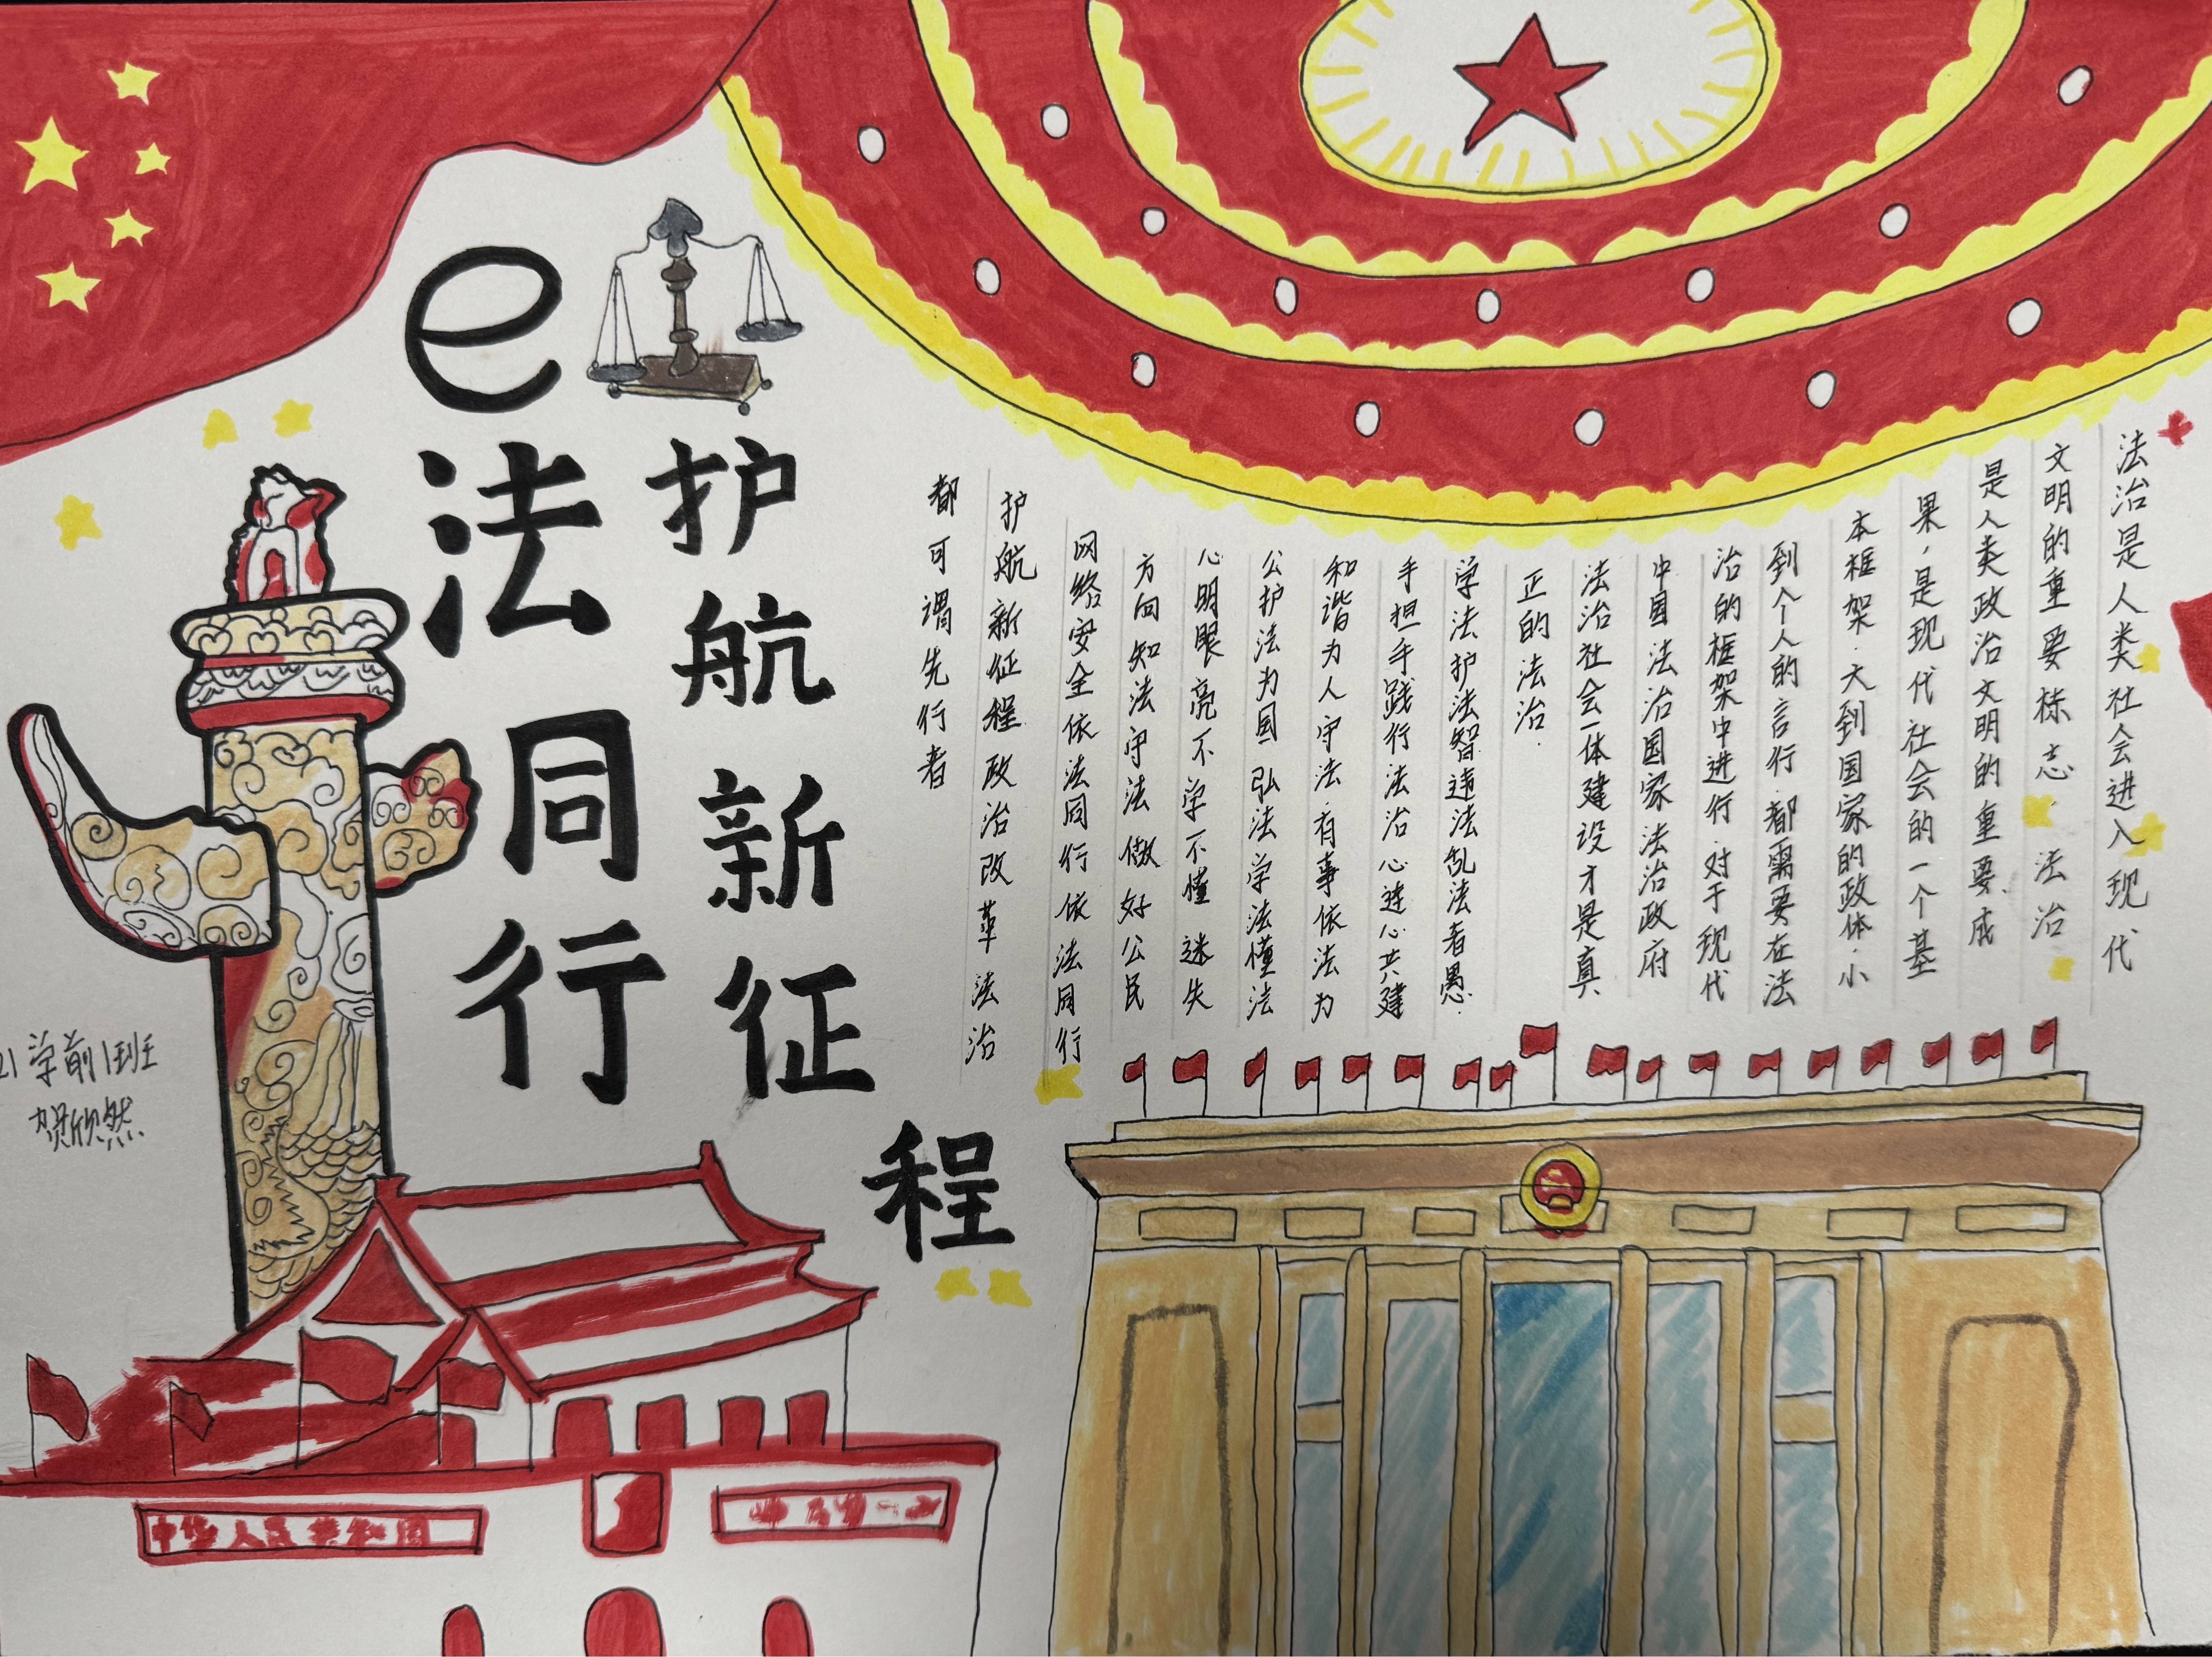 e
法同行
护航新征程
法治是人类社会进入现代
文明的重要标志 法治
是人类政治文明的重要成
果，是现代社会的一个基
本框架.大到国家的政体.小
到个人的言行.都需要在法
治的框架中进行.对于现代
中国法治国家法治政府
法治社会一体建设才是真
正的法治.
学法护法智违法乱法者愚.
手担手践行法治心连心共建
和谐为人守法.有事依法为
公护法为国弘法学法懂法
心明眼亮不学不懂迷失
方向知法守法做好公民
网络安全依法同行依法同行
护航新征程政治改革法治
都可谓先行者
21学前1班
贺欣然
中华人民共和国